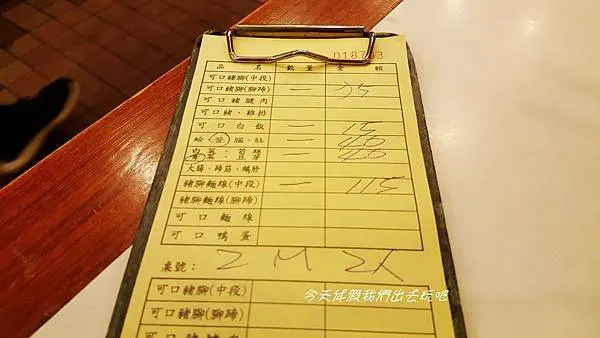 018703
品名 數量 金額
可口豬腳(中段)
可口豬腳(腳蹄) 一
可口豬腱肉
可口豬、雞排
可口白飯 一 15
蛤、苦、腦、肚 一 40
白菜：荀絲
青菜：豆芽 一 40
大腸、蹄筋、鴨胗
豬腳麵線(中段) 一 115
豬腳麵線(腳蹄)
可口麵線
可口鴨蛋
桌號：
可口豬腳(中段)
可口豬腳(腳蹄)
今天放假我們出去玩吧